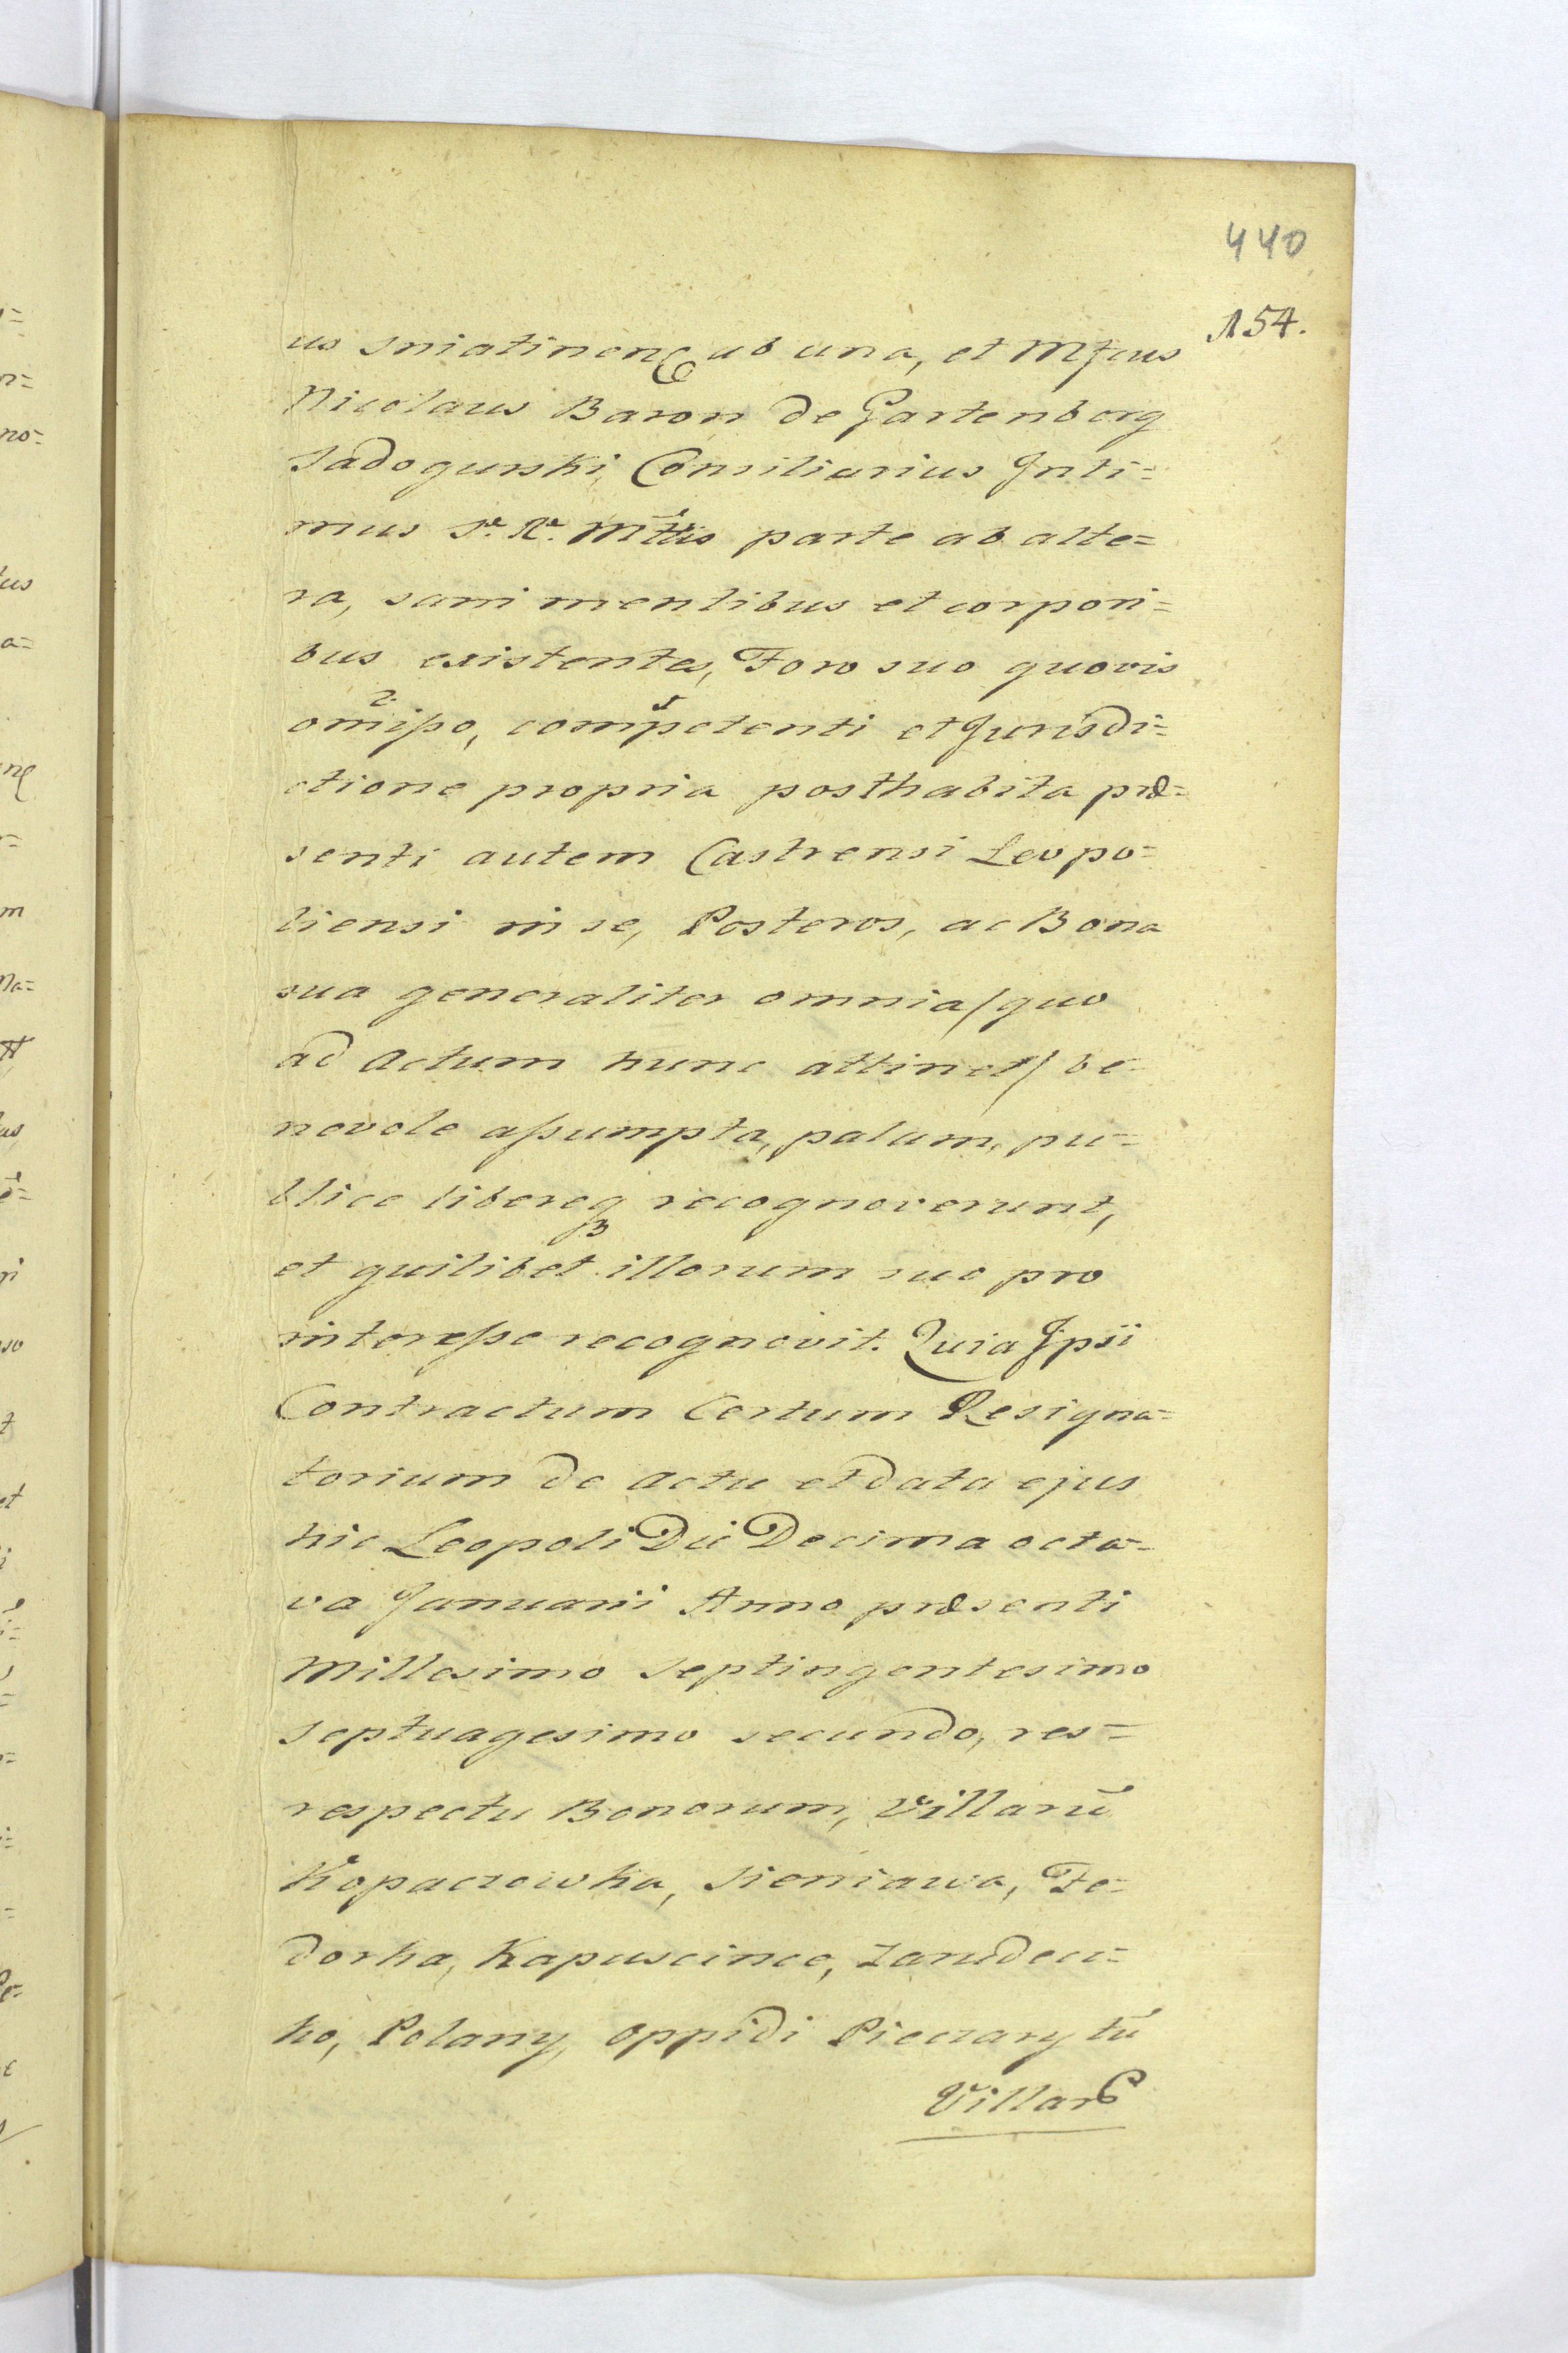 440
154.
us Sniatinenς ab una, et Mfcus
Nicolaus Baron de Gartenberg
Sadogurski, Consiliarius Inti=
mus Sæ. Ræ. Mttis parte ab alte=
ra, sani mentibus et corpori=
bus existentes, Foro suo quovis
om̃isso, comp̃etenti et Jurisdi=
ctione propria posthabita præ=
senti autem Castrensi Leopo=
liensi in se, Posteros, ac Bona
sua generaliter omnia/quo
ad Actum hunc attinet/ be
nevole assumpta, palam, pu=
blice libereqꝫ recognoverunt,
et quilibet illorum suo pro
interesse recognovit. Quia Ipsii
Contractum Certum Resigna=
torium de actu et data ejus
hic Leopoli Die Decima octa=
va Januarii Anno præsenti
Millesimo Septingentesimo
Septuagesimo secundo, res=
respectu Bonorum, Villarū
Kopaczowka, Sieniawa, Fe=
dorka, Kapuscince, Janidecu=
ko, Polany, oppidi Pieczary tū
Villarō